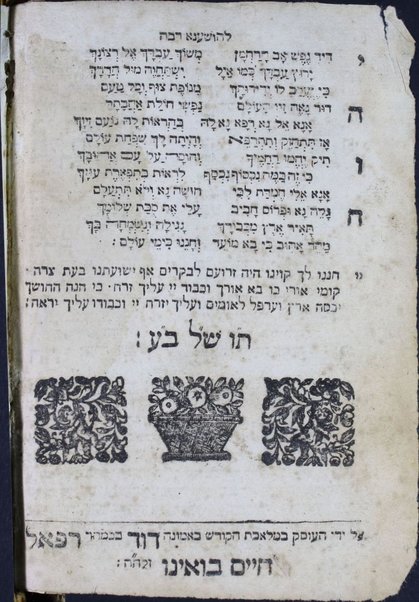 להושענא רבה
י ידיד נפש אב הרחמן משוך עבדך אל רצונך
ירוץ עבדך כמו איל ישתחוה מול הדרך
כי יערב לו ידידותך מנופת צוף וכל טעם
ה הדור נאה זיו העולם נפשי חולת אהבתך
אנא אל נא רפא נא לה בהראות לה נועם זיוך
אז תתחזק ותתרפא והיתה לך שפחת עולם
ו ותיק יהמו רחמיך וחוסה על עם אהובך
כי זה כמה נכסוף נכסף לראות בתפארת עוזך
אנא אלי חמדת לבי חושה נא ולא תתעלם
ה הגלה נא ופרוס חביב עלי את סכת שלומך
תאיר ארץ מכבודך נגילה ונשמחה בך
מהר אהוב כי בא מועד וחנני כימי עולם :
יי חננו לך קוינו היה זרועם לבקרים אף ישועתנו בעת צרה ׃
קומי אורי כי בא אורך וכבוד יי עליך זרח ׃ כי הנה החושך
יכסה ארץ וערפל לאומים ועליך יזרח יי וכבודו עליך יראה :
תו של בע :
על ידי העוסק במלאכת הקודש באמונה דוד בכמהר רפאל
חיים בואינו זלהה :